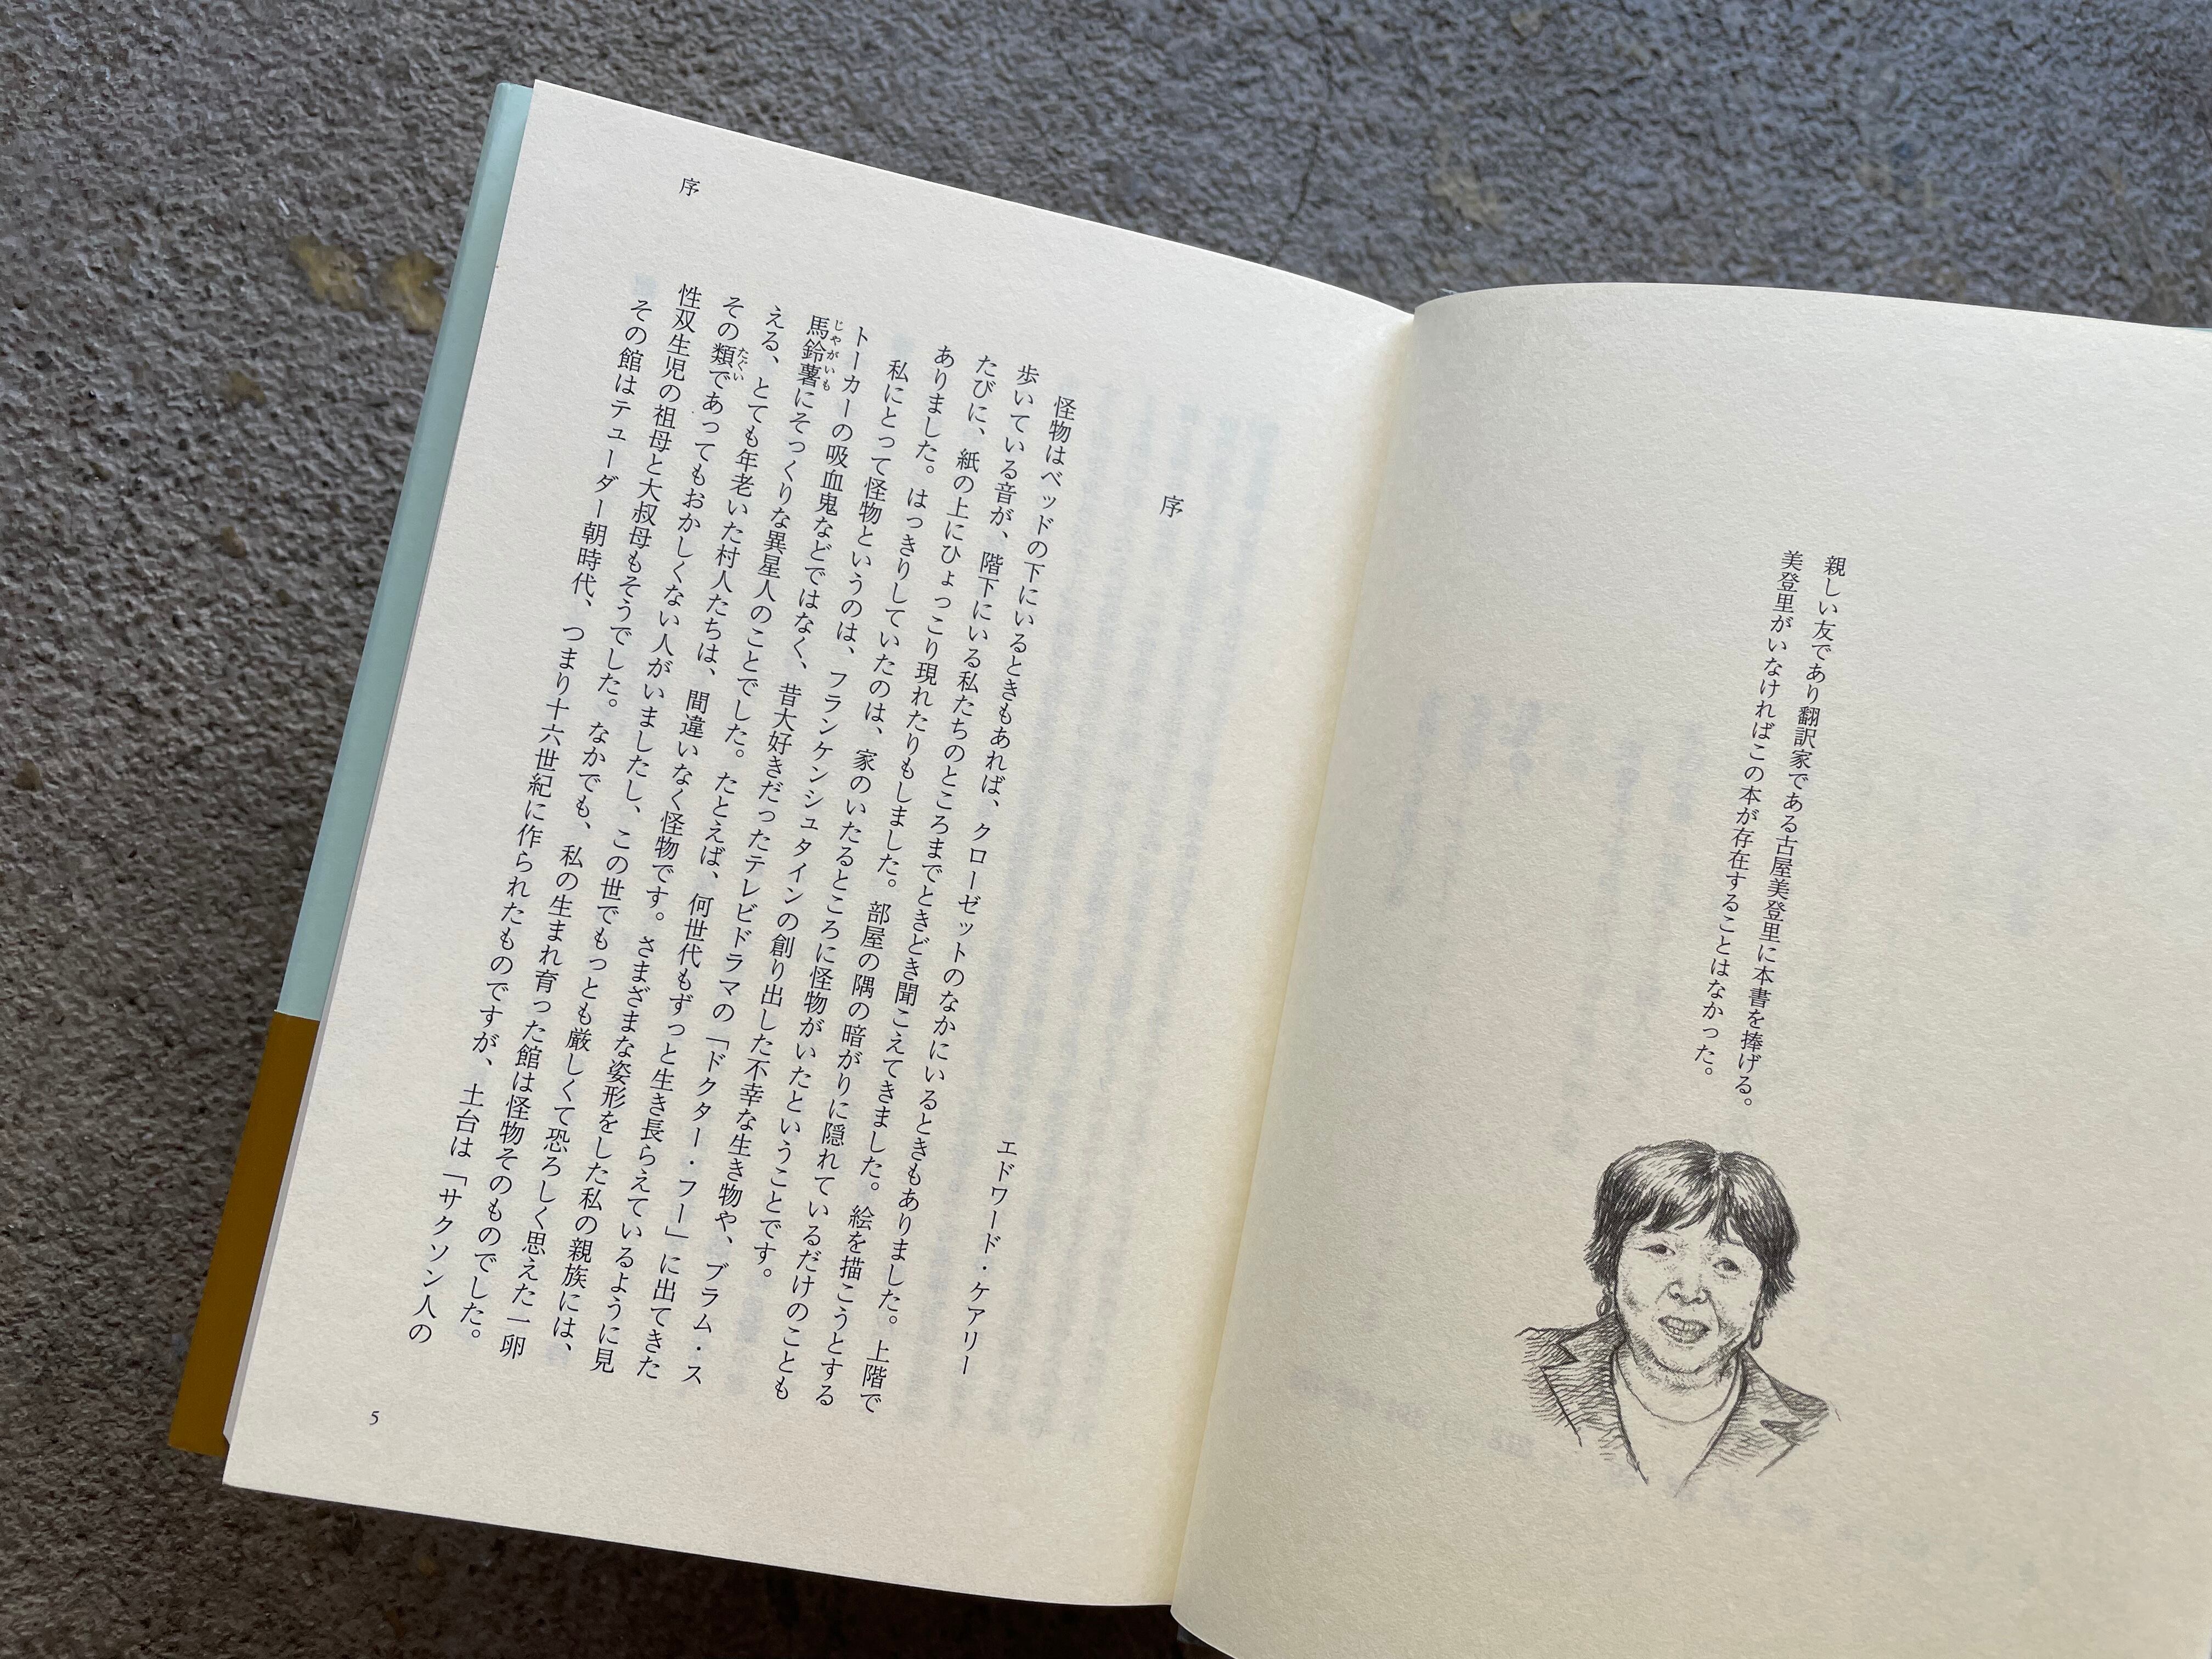 親しい友であり翻訳家である古屋美登里に本書を捧げる。
美登里がいなければこの本が存在することはなかった。
序
エドワード・ケアリー
怪物はベッドの下にいるときもあれば、クローゼットのなかにいるときもありました。上階で
歩いている音が、階下にいる私たちのところまでときどき聞こえてきました。絵を描こうとする
たびに、紙の上にひょっこり現れたりもしました。部屋の隅の暗がりに隠れているだけのことも
ありました。はっきりしていたのは、家のいたるところに怪物がいたということです。
私にとって怪物というのは、フランケンシュタインの創り出した不幸な生き物や、ブラム・ス
トーカーの吸血鬼などではなく、昔大好きだったテレビドラマの「ドクター・フー」に出てきた
馬鈴薯にそっくりな異星人のことでした。たとえば、何世代もずっと生き長らえているように見
じゃがいも
える、とても年老いた村人たちは、間違いなく怪物です。さまざまな姿形をした私の親族には、
その類であってもおかしくない人がいましたし、この世でもっとも厳しくて恐ろしく思えた一卵
たぐい
性双生児の祖母と大叔母もそうでした。なかでも、私の生まれ育った館は怪物そのものでした。
その館はテューダー朝時代、つまり十六世紀に作られたものですが、土台は「サクソン人の
序
5